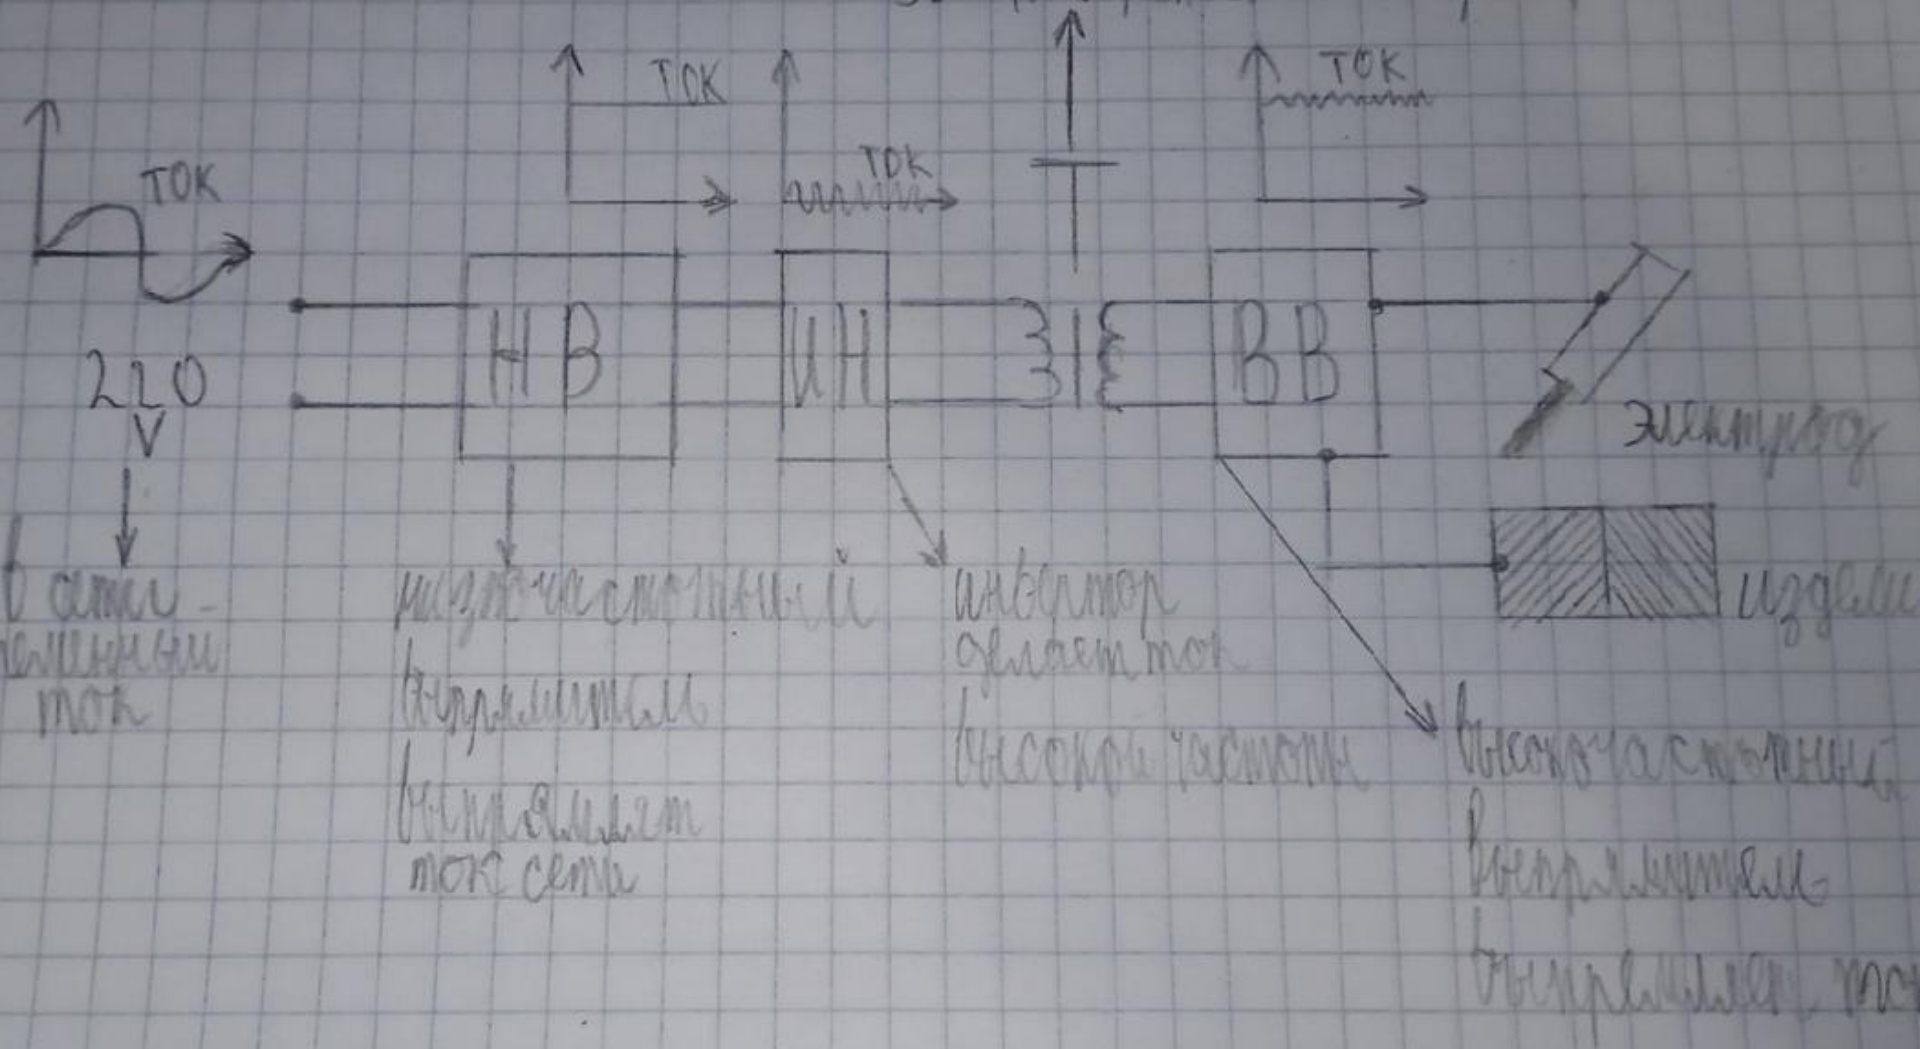 ТОК
ТОК
ТОК
ТОК
220
V
НВ
ИН
ВВ
электрод
издели
в сети -
еменный
ток
низкочастотный
выпрямитель
выпрямляет
ток сети
инвертор
делает ток
высокой частоты
высокочастотный
выпрямитель
выпрямляет то